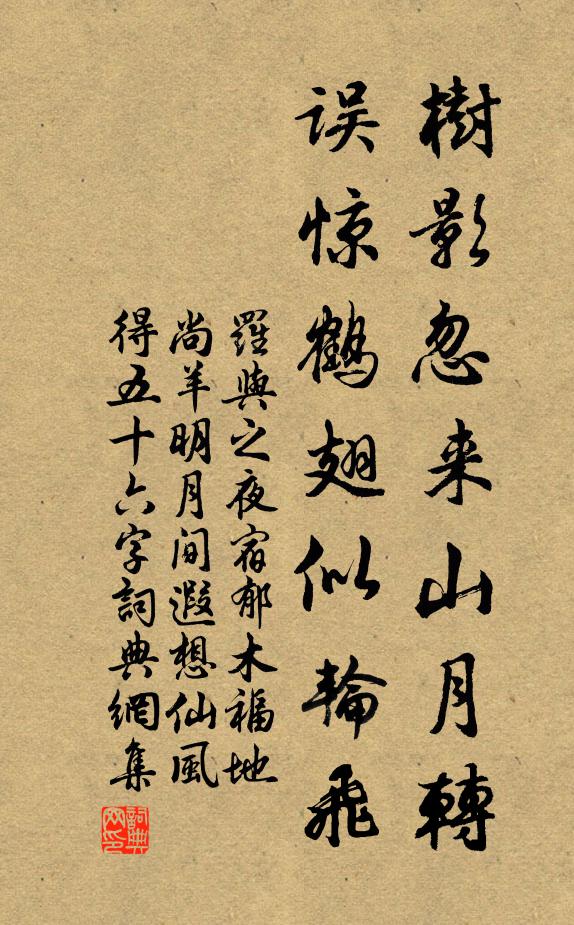 樹影忽来山月轉
误惊鶴翅似輪飛
羅與之夜宿郁木福地
尚羊明月间遐想仙風
得五十六字詞典網集
詞典
网印